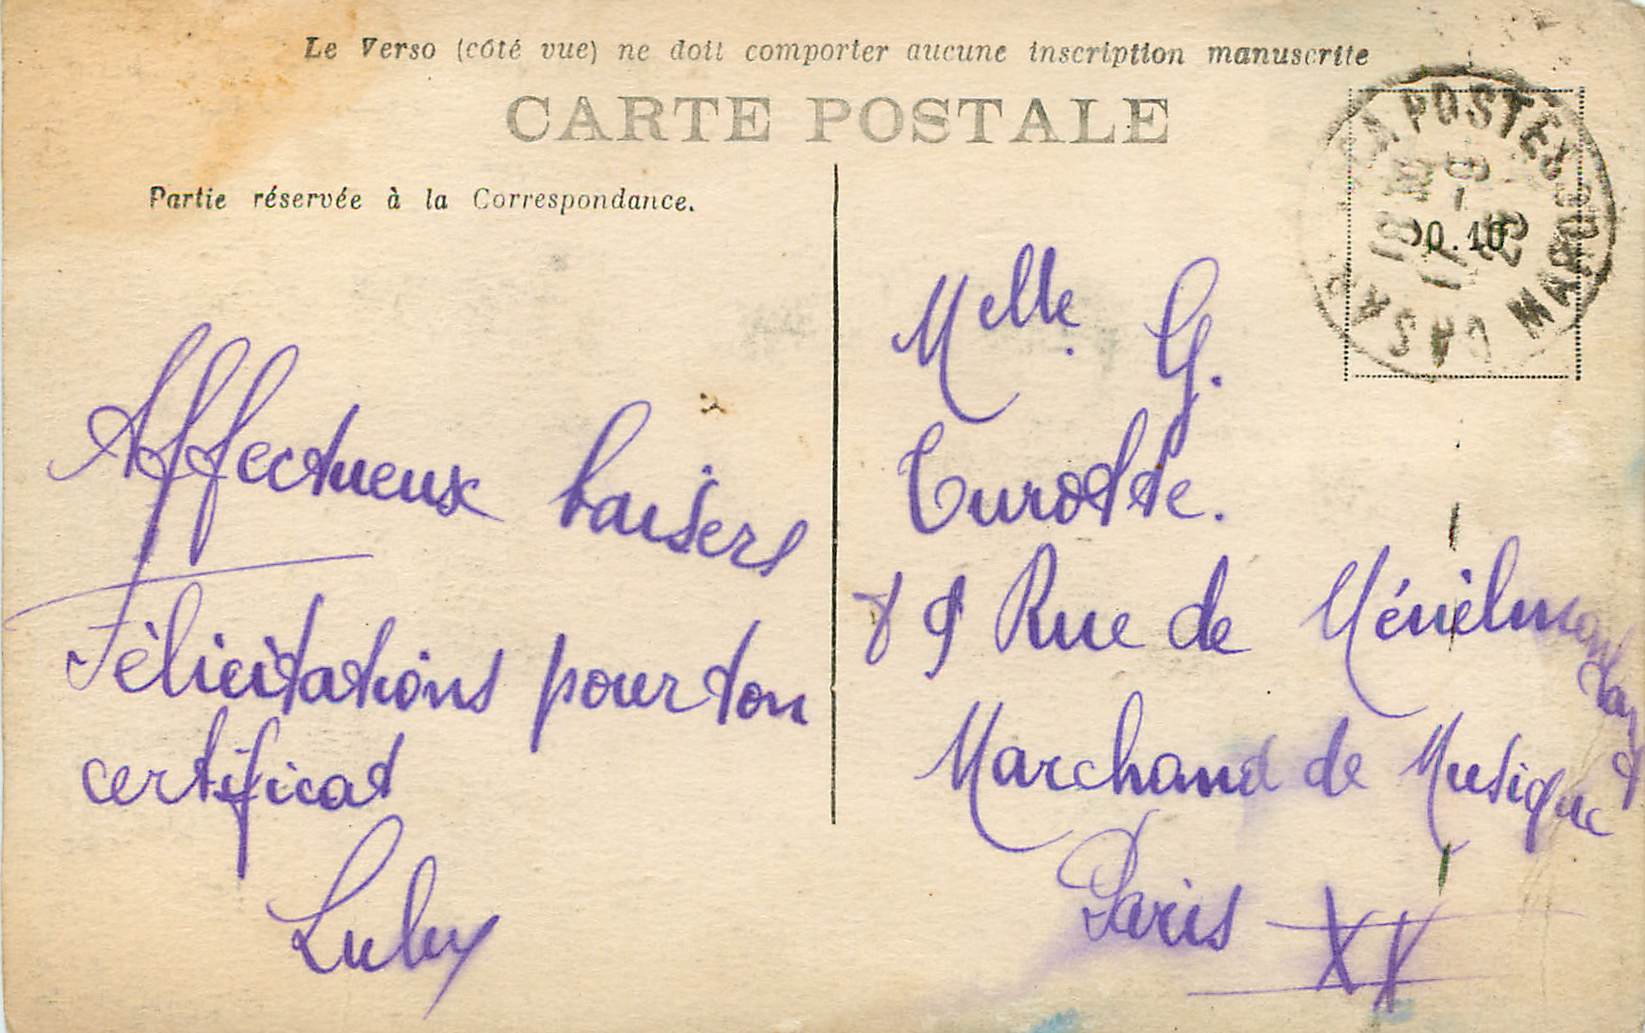 Le Verso (côté vue) ne doit comporter aucune inscription manuscrite
CARTE POSTALE
Partie réservée à la Correspondance.
Affectueux baisers
Félicitations pour ton
certificat
Luley
CASA POSTES
MAROC
0.10
Melle. G.
Turotte.
89 Rue de Ménilmontant
Marchand de Musique
Paris XX